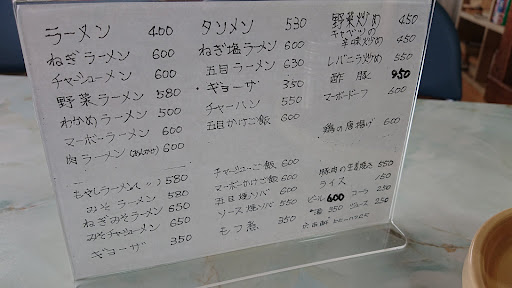 ラーメン 400
ねぎラーメン 600
チャーシューメン 600
野菜ラーメン 580
わかめラーメン 500
マーボーラーメン 600
肉ラーメン(あんかけ) 600
もやしラーメン(〃) 580
みそラーメン 580
ねぎみそラーメン 650
みそチャーシューメン 650
ギョーザ 350
タンメン 530
ねぎ塩ラーメン 600
五目ラーメン 630
・ギョーザ 350
チャーハン 550
五目かけご飯 600
チャーシューご飯 600
マーボーかけご飯 600
五目焼ソバ 600
ソース焼ソバ 550
モツ煮 350
野菜炒め 450
キャベツの辛味炒め 450
レバニラ炒め 550
酢豚 950
マーボードーフ 600
鶏の唐揚げ 600
豚肉の生姜焼き 550
ライス 150
ビール 600 コーラ 250
350 ジュース 250